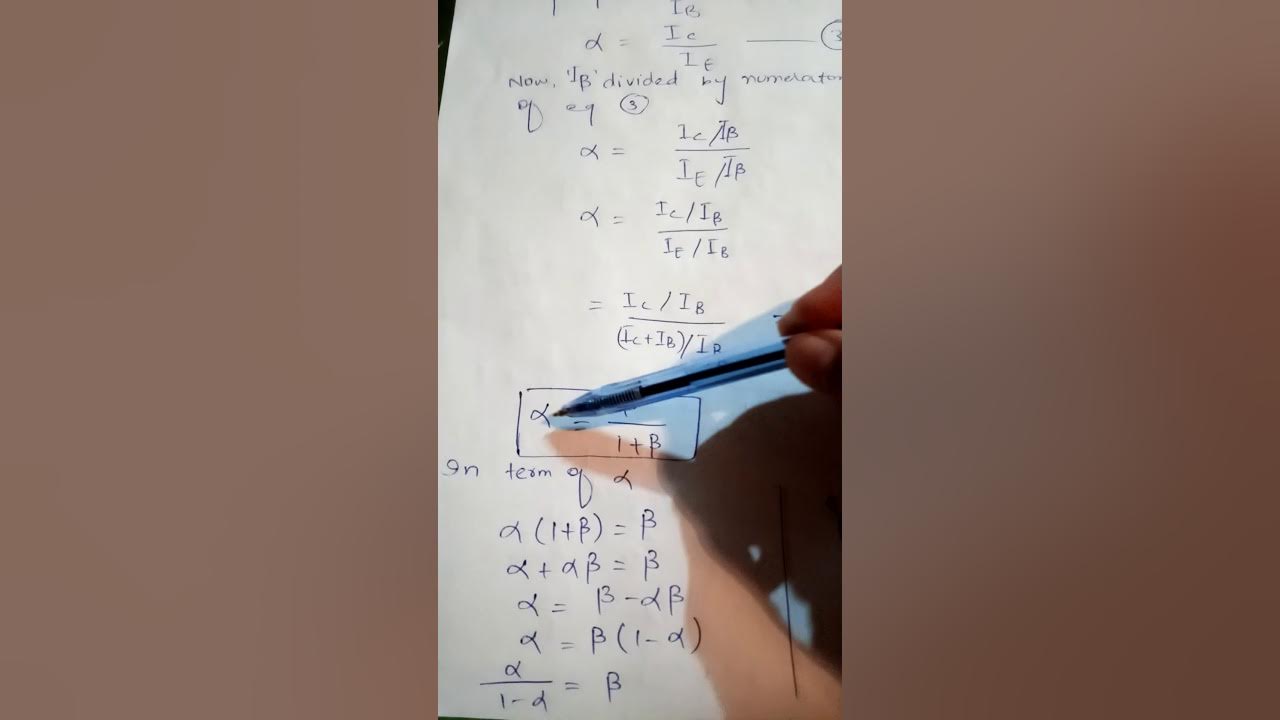 I_B
α = I_C / I_E ——— ③
Now, 'I_B' divided by numerator
of eq ③
α = (I_C / I_B) / (I_E / I_B)
α = (I_C / I_B) / (I_E / I_B)
= (I_C / I_B) / ((I_C + I_B) / I_B)
α = / 1+β
In term of α
α (1+β) = β
α + αβ = β
α = β - αβ
α = β (1 - α)
α / 1-α = β